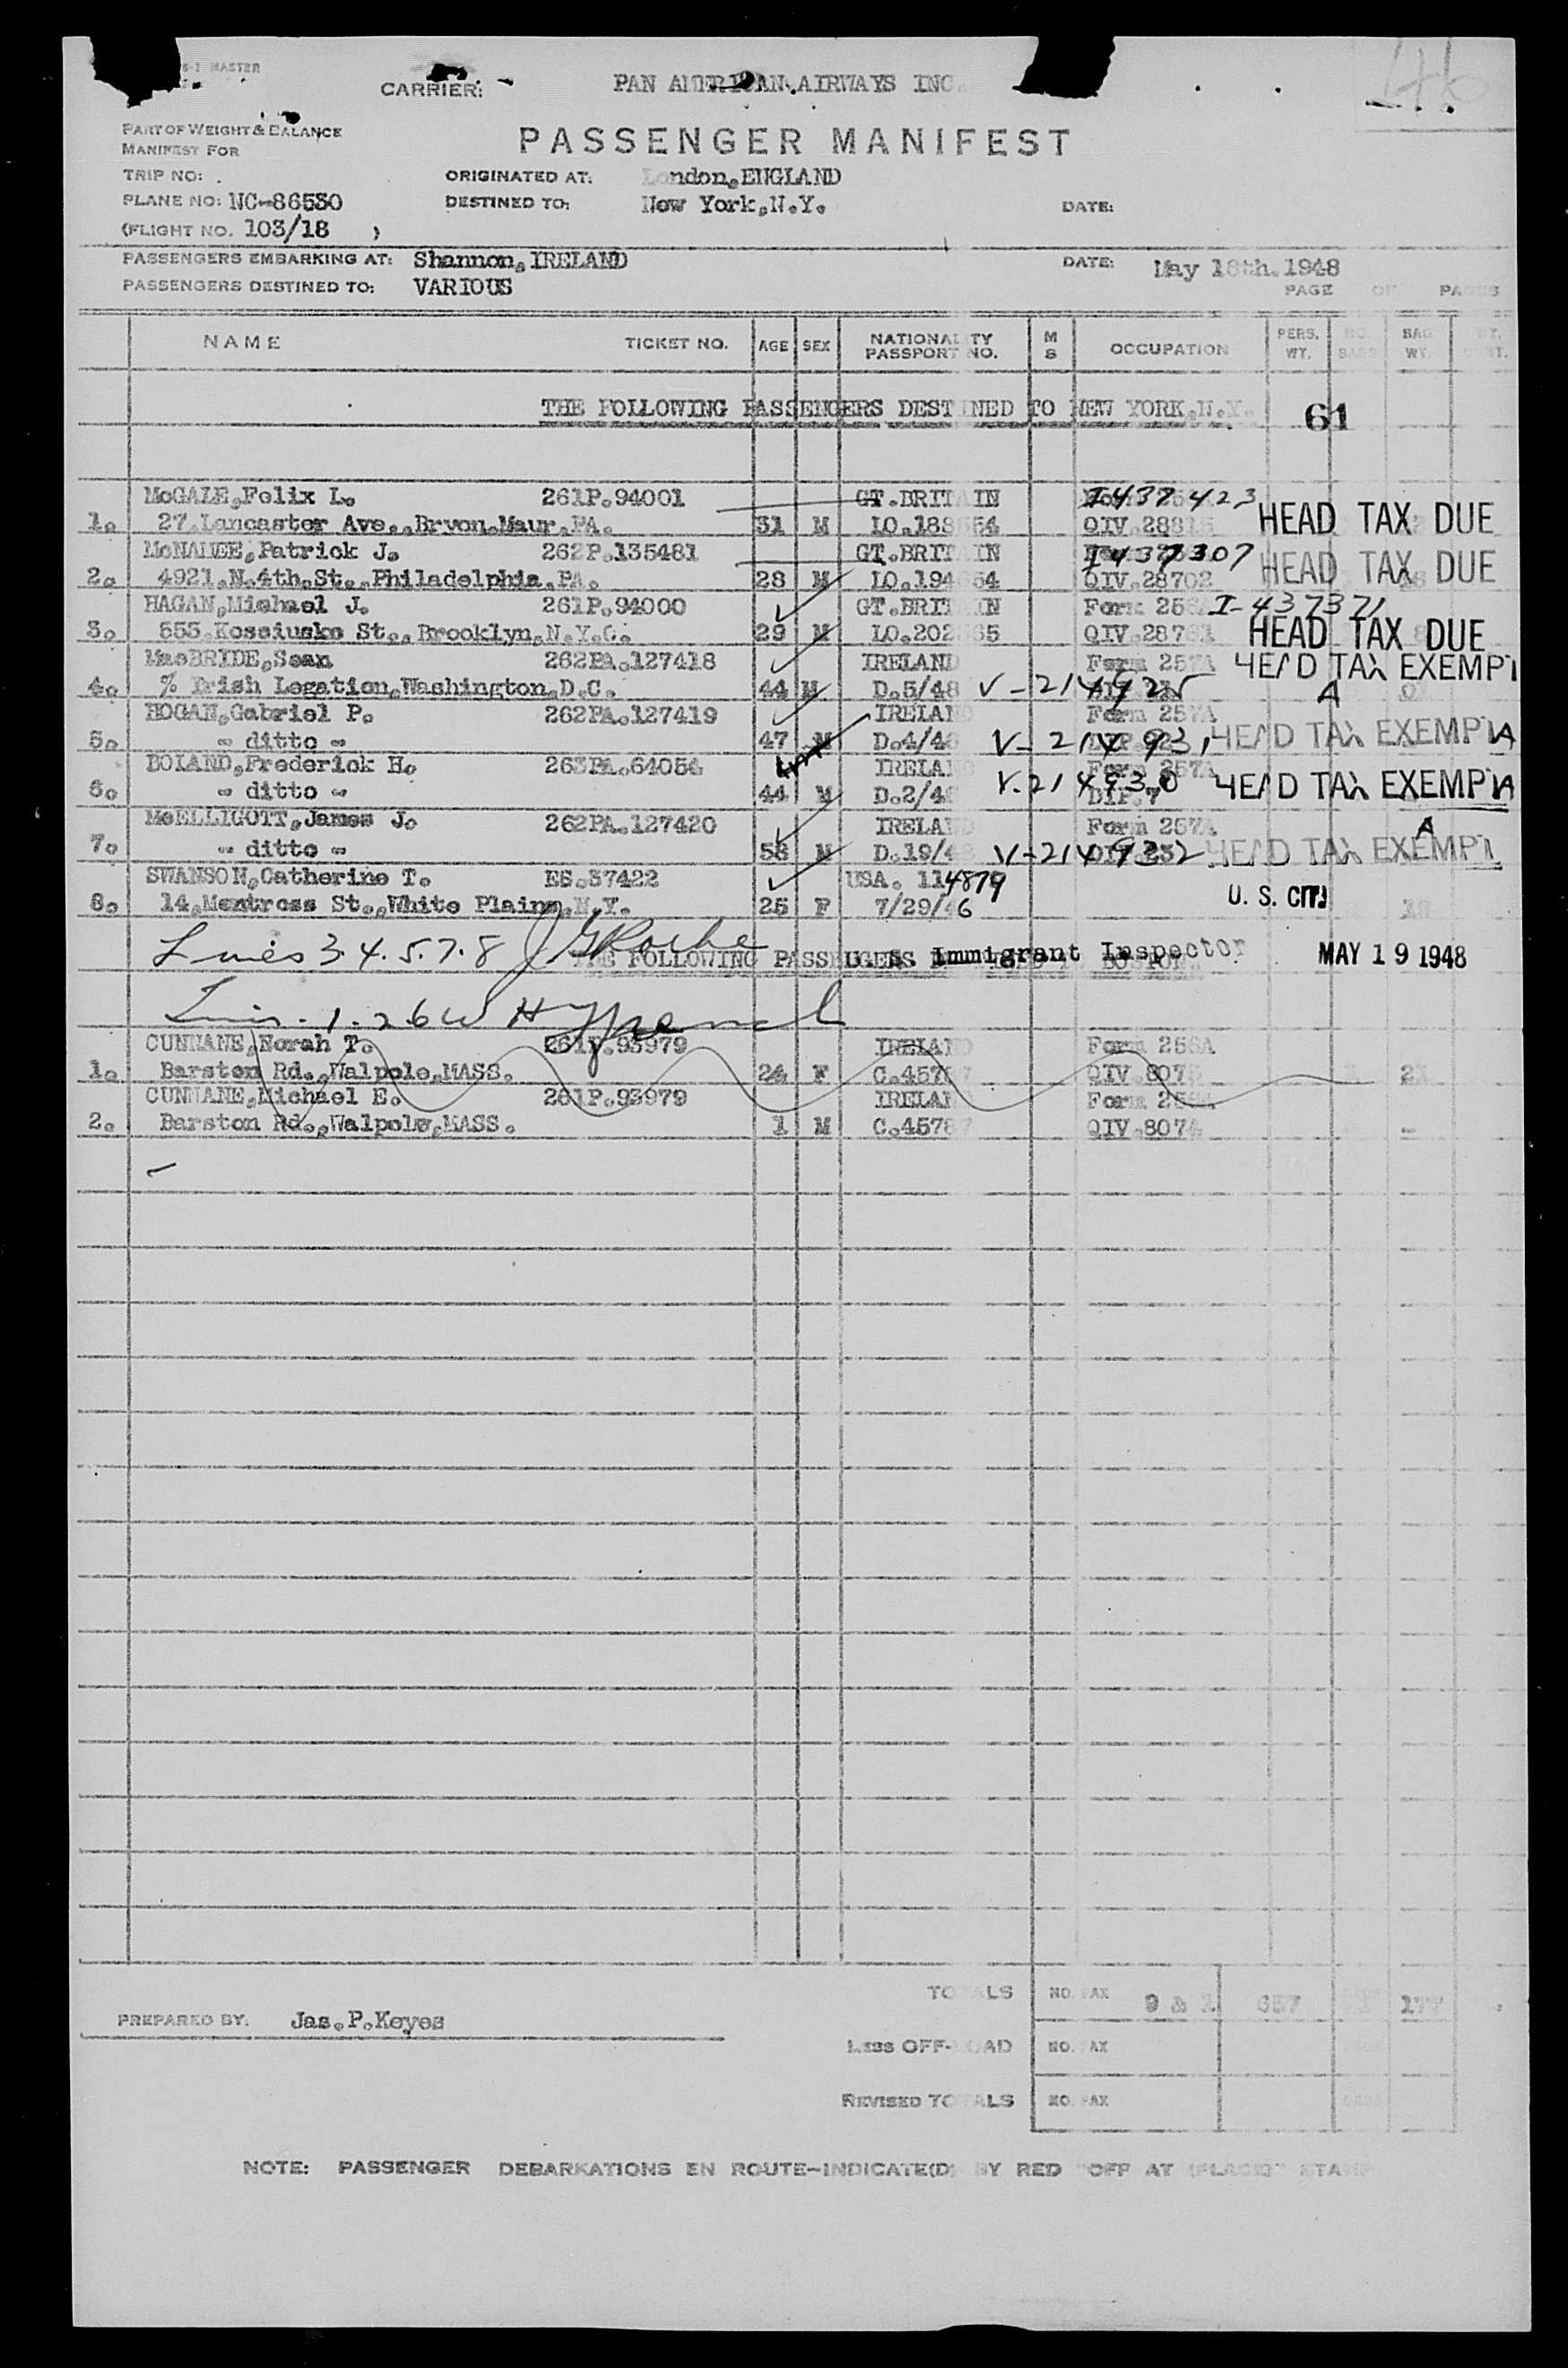 S-1 MASTER
CARRIER: PAN AMERICAN AIRWAYS INC.
PART OF WEIGHT & BALANCE
MANIFEST FOR
PASSENGER MANIFEST
TRIP NO: ORIGINATED AT: London, ENGLAND
PLANE NO: NC-86530 DESTINED TO: New York, N.Y. DATE:
(FLIGHT NO. 103/18 )
PASSENGERS EMBARKING AT: Shannon, IRELAND DATE: May 18th. 1948
PASSENGERS DESTINED TO: VARIOUS PAGE OF PAGES
NAME TICKET NO. AGE SEX NATIONALITY PASSPORT NO. M S OCCUPATION PERS. WT. NO. BAGS BAG WT.
THE FOLLOWING PASSENGERS DESTINED TO NEW YORK, N.Y. 61
McGALE, Felix L. 261P.94001 GT.BRITAIN I437423
1. 27. Lancaster Ave., Bryon. Maur, PA. 31 M LO.188554 QIV.28815 HEAD TAX DUE
McNAMEE, Patrick J. 262P.135481 GT.BRITAIN I437307
2. 4921. N. 4th. St., Philadelphia, PA. 28 M LO.194654 QIV.28702 HEAD TAX DUE
HAGAN, Michael J. 261P.94000 GT.BRITAIN Form 256A I-437371
3. 555. Kosciusko St., Brooklyn, N.Y.C. 29 M LO.202565 QIV.28761 HEAD TAX DUE
MacBRIDE, Sean 262PA.127418 IRELAND Form 257A HEAD TAX EXEMPT
4. % Irish Legation, Washington, D.C. 44 M D.5/48 V-214925 A
HOGAN, Gabriel P. 262PA.127419 IRELAND Form 257A
5. - ditto - 47 M D.4/48 V-214931 HEAD TAX EXEMPT A
BOLAND, Frederick H. 263PA.64054 IRELAND Form 257A
6. - ditto - 44 M D.2/48 V-214930 DIP.7 HEAD TAX EXEMPT A
McELLIGOTT, James J. 262PA.127420 IRELAND Form 257A A
7. - ditto - 58 M D.19/48 V-214932 HEAD TAX EXEMPT
SWANSON, Catherine T. ES.37422 USA. 114879
8. 14, Montross St., White Plains, N.Y. 25 F 7/29/46 U. S. CIT.
Lines 3.4.5.7.8 J G Roche U. S. Immigrant Inspector MAY 19 1948
THE FOLLOWING PASSENGERS DESTINED TO BOSTON
Lines 1.2.6 W H
CUNNANE, Norah T. 261P.93979 IRELAND Form 256A
1. Barston Rd., Walpole, MASS. 24 F C.45787 QIV.8075 21
CUNNANE, Michael E. 261P.93979 IRELAND Form 256A
2. Barston Rd., Walpole, MASS. 1 M C.45787 QIV.8074 -
TOTALS NO. PAX 9 & 1 657 177
PREPARED BY: Jas. P. Keyes
LESS OFF-LOAD NO. PAX
REVISED TOTALS NO. PAX
NOTE: PASSENGER DEBARKATIONS EN ROUTE-INDICATE(D) BY RED "OFF AT (PLACE)" STAMP